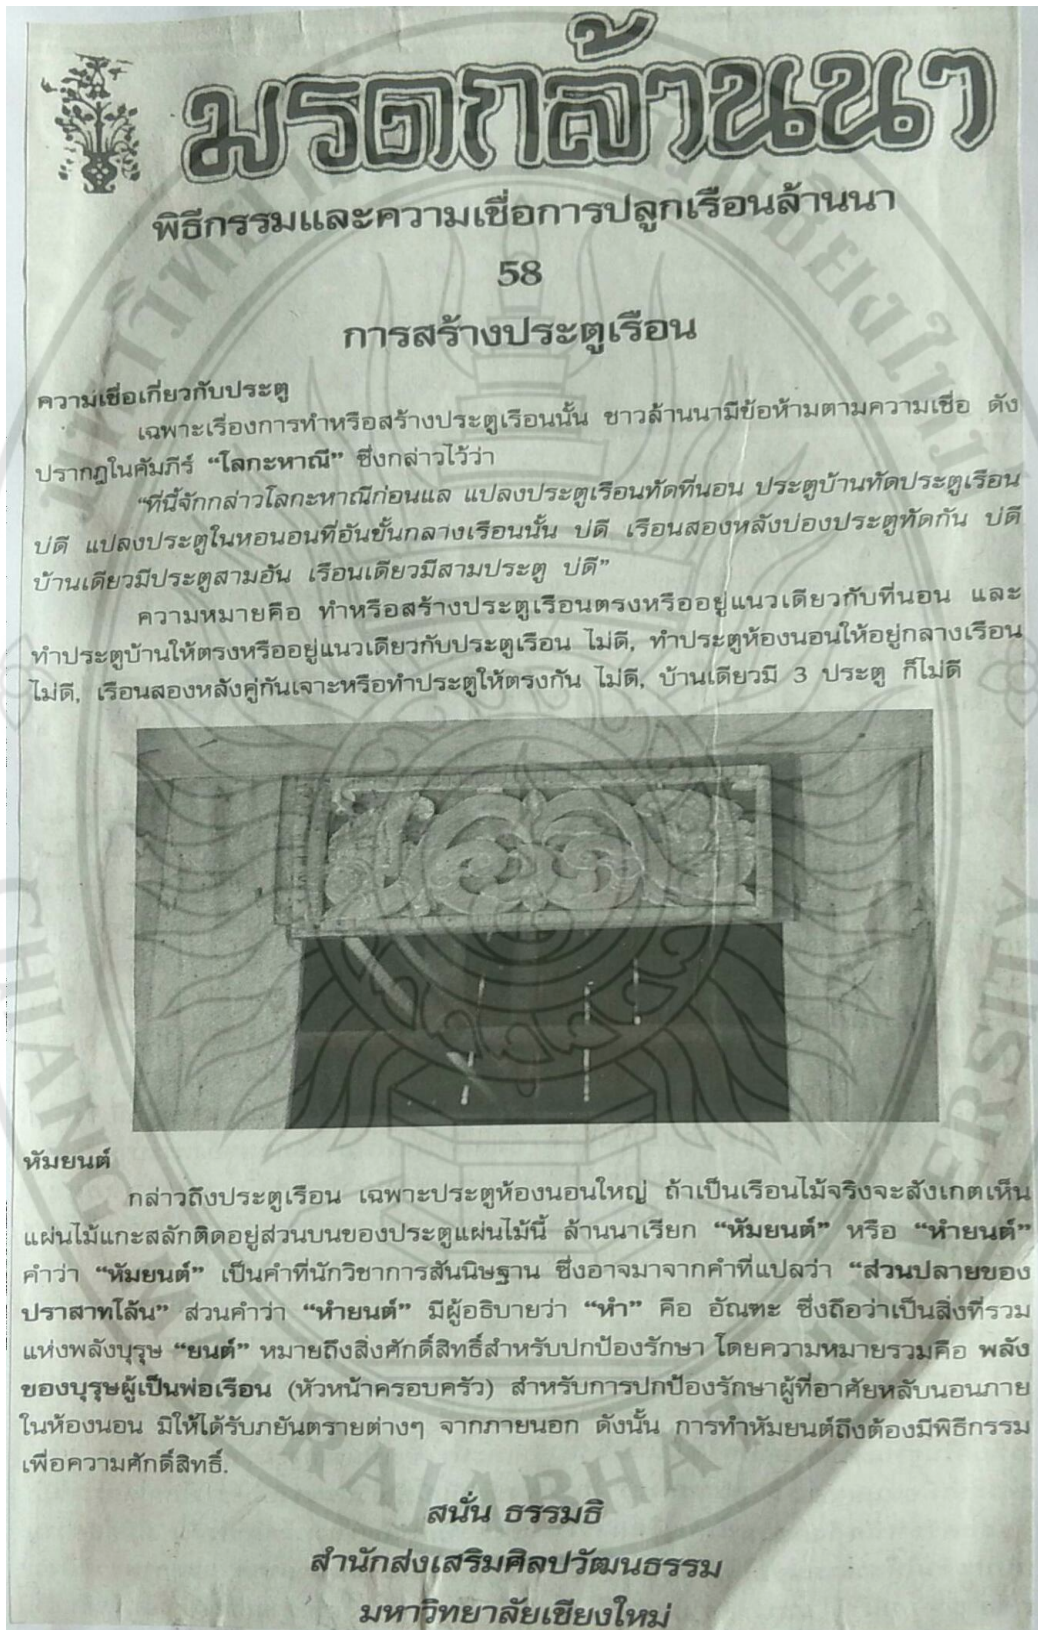 มรดกล้านนา
พิธีกรรมและความเชื่อการปลูกเรือนล้านนา
58
การสร้างประตูเรือน
ความเชื่อเกี่ยวกับประตู
เฉพาะเรื่องการทำหรือสร้างประตูเรือนนั้น ชาวล้านนามีข้อห้ามตามความเชื่อ ดัง
ปรากฏในคัมภีร์ “โลกะหาณี” ซึ่งกล่าวไว้ว่า
“ที่นี้จักกล่าวโลกะหาณีก่อนแล แปลงประตูเรือนทัดที่นอน ประตูบ้านทัดประตูเรือน
บ่ดี แปลงประตูในหอนอนที่อันขั้นกลางเรือนนั้น บ่ดี เรือนสองหลังปองประตูทัดกัน บ่ดี
บ้านเดียวมีประตูสามอัน เรือนเดียวมีสามประตู บ่ดี”
ความหมายคือ ทำหรือสร้างประตูเรือนตรงหรืออยู่แนวเดียวกับที่นอน และ
ทำประตูบ้านให้ตรงหรืออยู่แนวเดียวกับประตูเรือน ไม่ดี, ทำประตูห้องนอนให้อยู่กลางเรือน
ไม่ดี, เรือนสองหลังคู่กันเจาะหรือทำประตูให้ตรงกัน ไม่ดี, บ้านเดียวมี 3 ประตู ก็ไม่ดี
หัมยนต์
กล่าวถึงประตูเรือน เฉพาะประตูห้องนอนใหญ่ ถ้าเป็นเรือนไม้จริงจะสังเกตเห็น
แผ่นไม้แกะสลักติดอยู่ส่วนบนของประตูแผ่นไม้นี้ ล้านนาเรียก “หัมยนต์” หรือ “หำยนต์”
คำว่า “หัมยนต์” เป็นคำที่นักวิชาการสันนิษฐาน ซึ่งอาจมาจากคำที่แปลว่า “ส่วนปลายของ
ปราสาทโล้น” ส่วนคำว่า “หำยนต์” มีผู้อธิบายว่า “หำ” คือ อัณฑะ ซึ่งถือว่าเป็นสิ่งที่รวม
แห่งพลังบุรุษ “ยนต์” หมายถึงสิ่งศักดิ์สิทธิ์สำหรับปกป้องรักษา โดยความหมายรวมคือ พลัง
ของบุรุษผู้เป็นพ่อเรือน (หัวหน้าครอบครัว) สำหรับการปกป้องรักษาผู้ที่อาศัยหลับนอนภาย
ในห้องนอน มิให้ได้รับภยันตรายต่างๆ จากภายนอก ดังนั้น การทำหัมยนต์ถึงต้องมีพิธีกรรม
เพื่อความศักดิ์สิทธิ์.
สนั่น ธรรมธิ
สำนักส่งเสริมศิลปวัฒนธรรม
มหาวิทยาลัยเชียงใหม่
CHIANG MAI RAJABHAT UNIVERSITY